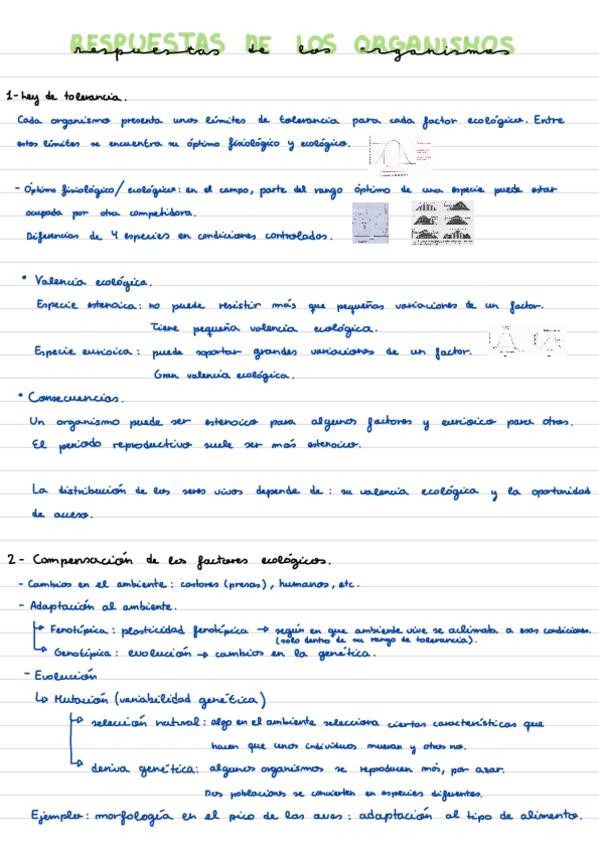 RESPUESTAS DE LOS ORGANISMOS
respuestas de los organismos
1- Ley de tolerancia.
Cada organismo presenta unos límites de tolerancia para cada factor ecológico. Entre
estos límites se encuentra su óptimo fisiológico y ecológico.
- Óptimo fisiológico/ecológico: en el campo, parte del rango óptimo de una especie puede estar
ocupada por otra competidora.
Diferencias de 4 especies en condiciones controladas.
• Valencia ecológica.
Especie estenoica: no puede resistir más que pequeñas variaciones de un factor.
Tiene pequeña valencia ecológica.
Especie eurioica: puede soportar grandes variaciones de un factor.
Gran valencia ecológica.
• Consecuencias.
Un organismo puede ser estenoico para algunos factores y eurioico para otros.
El periodo reproductivo suele ser más estenoico.
La distribución de los seres vivos depende de: su valencia ecológica y la oportunidad
de acceso.
2- Compensación de los factores ecológicos.
- Cambios en el ambiente: castores (presas), humanos, etc.
- Adaptación al ambiente.
↳ Fenotípica: plasticidad fenotípica → según en que ambiente vive se aclimata a esas condiciones.
(solo dentro de su rango de tolerancia).
↳ Genotípica: evolución → cambios en la genética.
- Evolución
↳ Mutación (variabilidad genética)
↳ selección natural: algo en el ambiente selecciona ciertas características que
hacen que unos individuos mueran y otros no.
↳ deriva genética: algunos organismos se reproducen más, por azar.
Dos poblaciones se convierten en especies diferentes.
Ejemplo: morfología en el pico de las aves: adaptación al tipo de alimento.